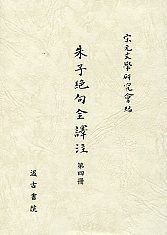 宋元文學研究會編
朱子絶句全譯注
第四冊
汲古書院